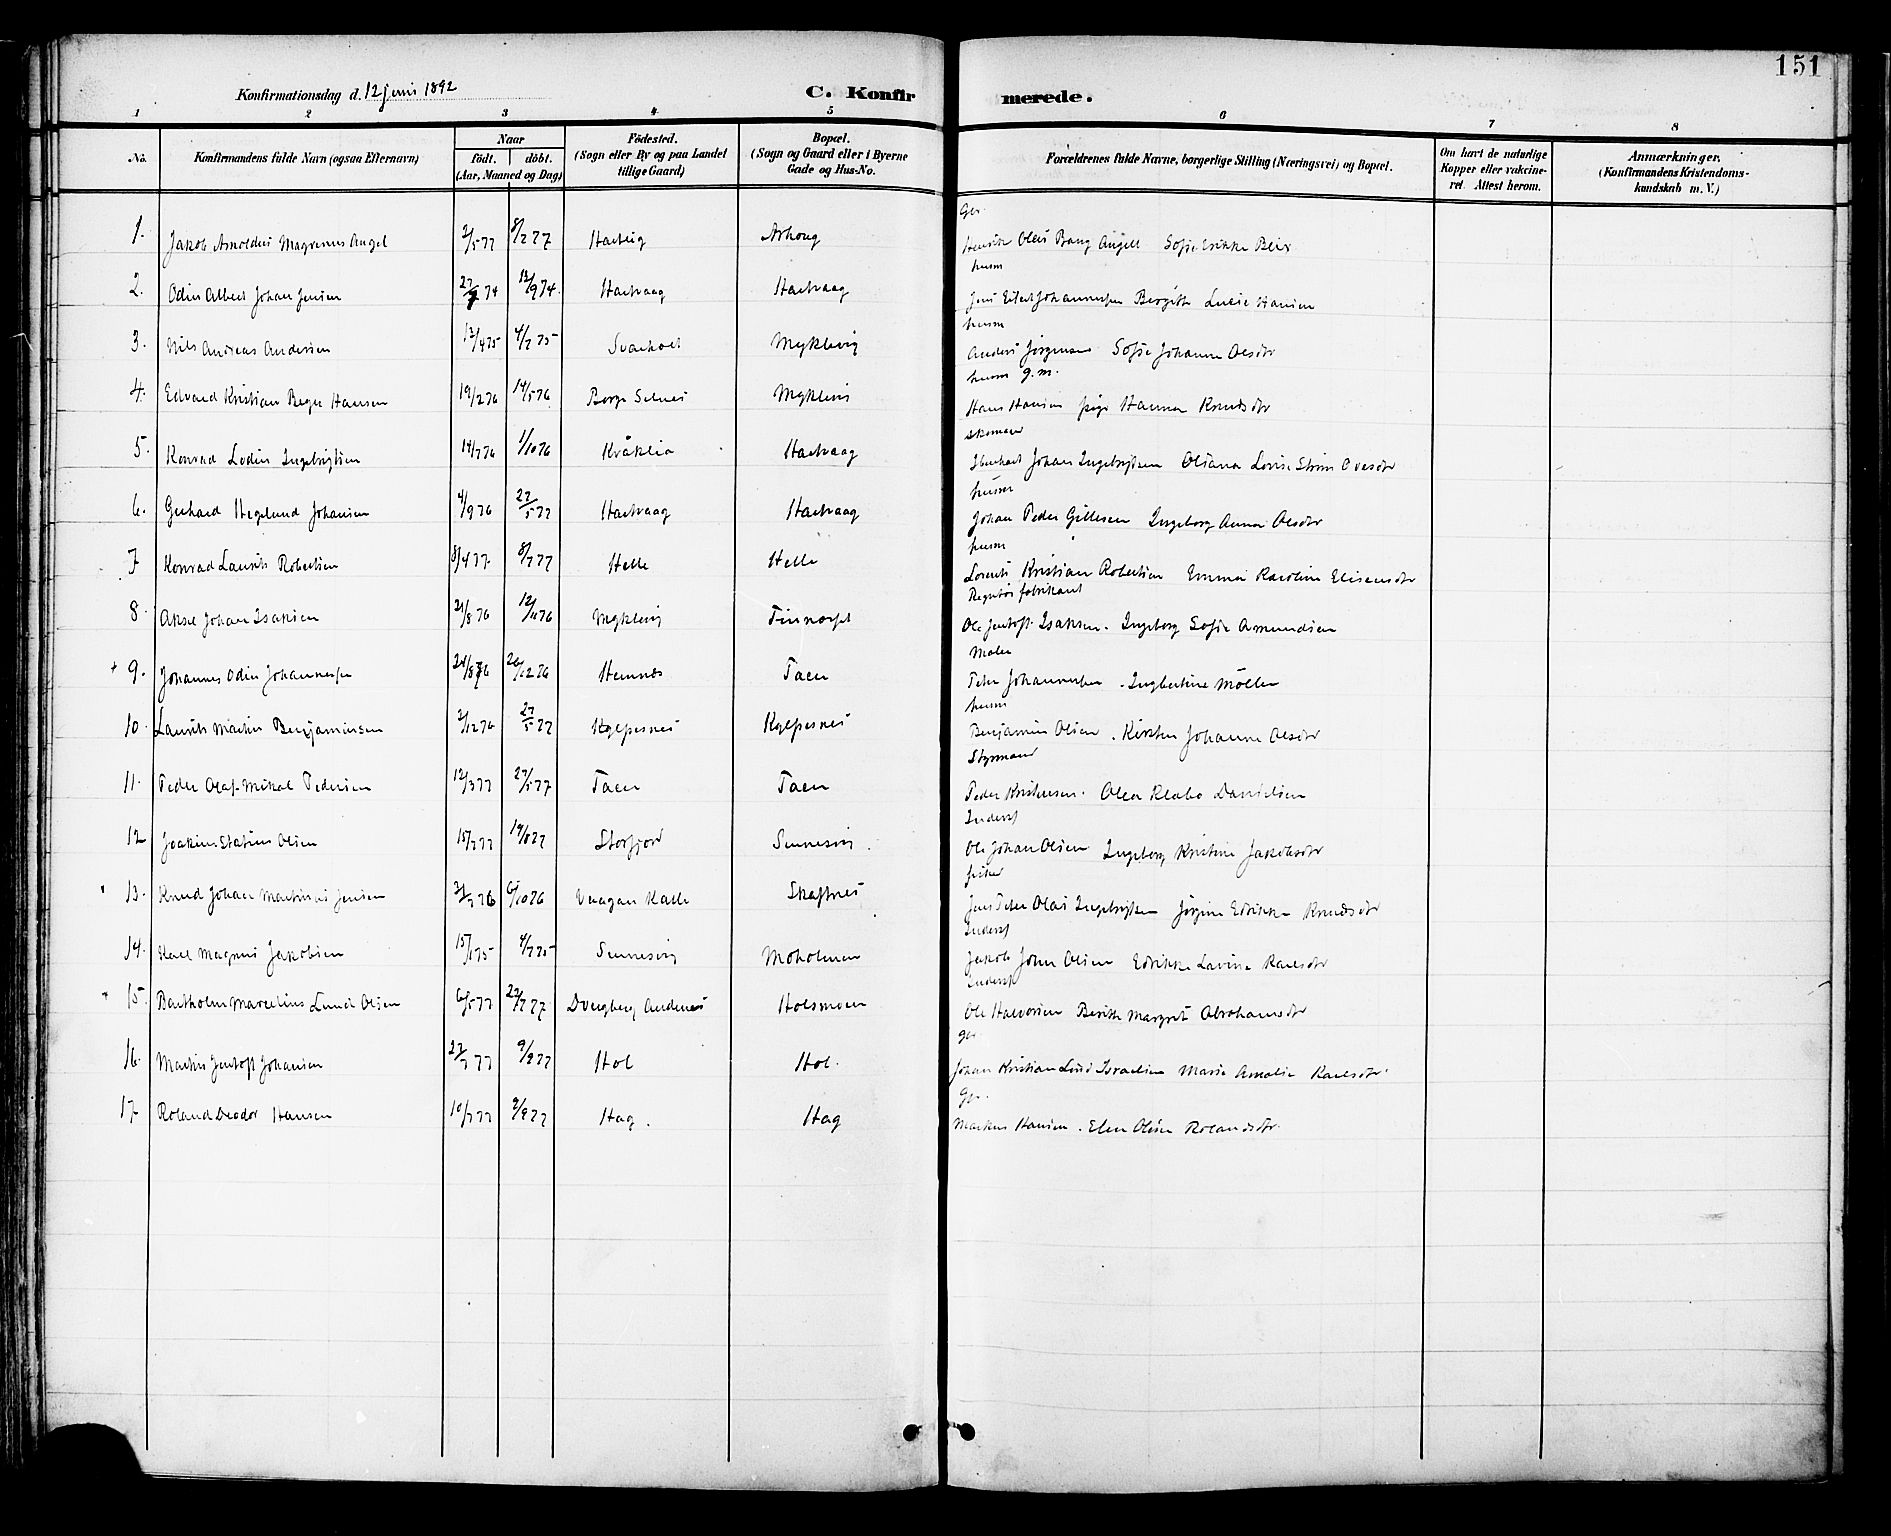 151
Konfirmationsdag d. 12 juni 1892 C. Konfirmerede.
1 2 3 4 5 6 7 8
No. Konfirmandens fulde Navn (ogsaa Efternavn) Naar födt. döbt. (Aar, Maaned og Dag) Födested. (Sogn eller By og paa Landet tillige Gaard) Bopæl. (Sogn og Gaard eller i Byerne Gade og Hus-No. Forældrenes fulde Navne, borgerlige Stilling (Næringsvei) og Bopæl. Om havt de naturlige Kopper eller vakcineret. Attest herom. Anmærkninger. (Konfirmandens Kristendomskundskab m. V.)
Gbr.
1. Jakob Arnoldus Magrenus Angel 2/5 77 8/7 77 Henrik Olai Bang Angell Sofie
husm
2. Odin Albert Johan Jensen 27/7 74 13/9 74. Hartvaag Hartvaag Jens Eilert Johannessen Bergitte Lucie Hansen
husm
3. Nils Andreas Andersen 13/4 75 4/7 75 Svarholt Myklevig Anders Jörgensen Sofie Johanna Olsdtr
husm g.m.
4. Edvard Kristian Hansen 19/2 76 14/5 76 Borge Myklevig Hans Hansen pige Hanna Knudsdtr
skomaer
5. Konrad Ludvig Ingebrigtsen 14/7 76 1/10 76 Kråklia Hartvaag Johan Ingebrigtsen Oliana Lovise Ovesdtr
husm
6. Gerhard Hegelund Johansen 4/9 76 27/5 77 Hartvaag Hartvaag Johan Peder Ingeborg Anna Olsdtr
husm
7 Konrad Laurits Robertsen 8/4 77. 8/7 77 Helle Helle Lorents Kristian Robertsen Emma Karoline Elisensdtr
fabrikant
8. Aksel Johan Isaksen 21/8 76 12/11 76 Myklevig Ole Jentoft Isaksen. Ingeborg Sofie Amundsen
Maler
+ 9. Johannes Odin Johannessen 24/8 76 26/12 76 Hemnes Taen Peter Johannessen. Ingbertine Möller
husm
10. Laurits Martin Benjaminsen 2/12 76 27/5 77 Kylpesnes Kylpesnes Benjamin Olsen. Kirsten Johanna Olsdtr
Styrmand
11. Peder Olaf Mikal Pedersen 12/3 77 27/5 77 Taen Taen Peder Kristensen. Olea Klabo Danielsen
Inderst
12 Joakim Statius Olsen 15/7 77 19/8 77 Storfjord Sennesvig. Ole Johan Olsen Ingeborg Kristine Jakobsdtr
fisker
13. Knud Johan Martinus Jensen 6/10 76 Vaagan Kalle Skaftnes Jens Peter Olai Ingebrigtsen Jörgine Edrikke Knudsdtr
Inderst
14. Karl Magnus Jakobsen 15/1 75 4/7 75 Sennesvig Moholmen Jakob John Olsen Edrikke Lavina Karlsdtr
Inderst
15. Bartholm Marcelius Lund Olsen 6/5 77 22/7 77 Dverberg Andenes Holsmoen Ole Halvorsen Berith Margret Abrahamsdtr
gbr.
16. Martin Jentoft Johansen 27/7 77 9/9 77 Hol Hol. Johan Kristian Lind Israelsen Maria Amalia Karlsdtr.
Gbr.
17. Roland Deodor Hansen 10/7 77 9/9 77 Hag. Hag Markus Hansen. Elen Olina Rolandsdtr.